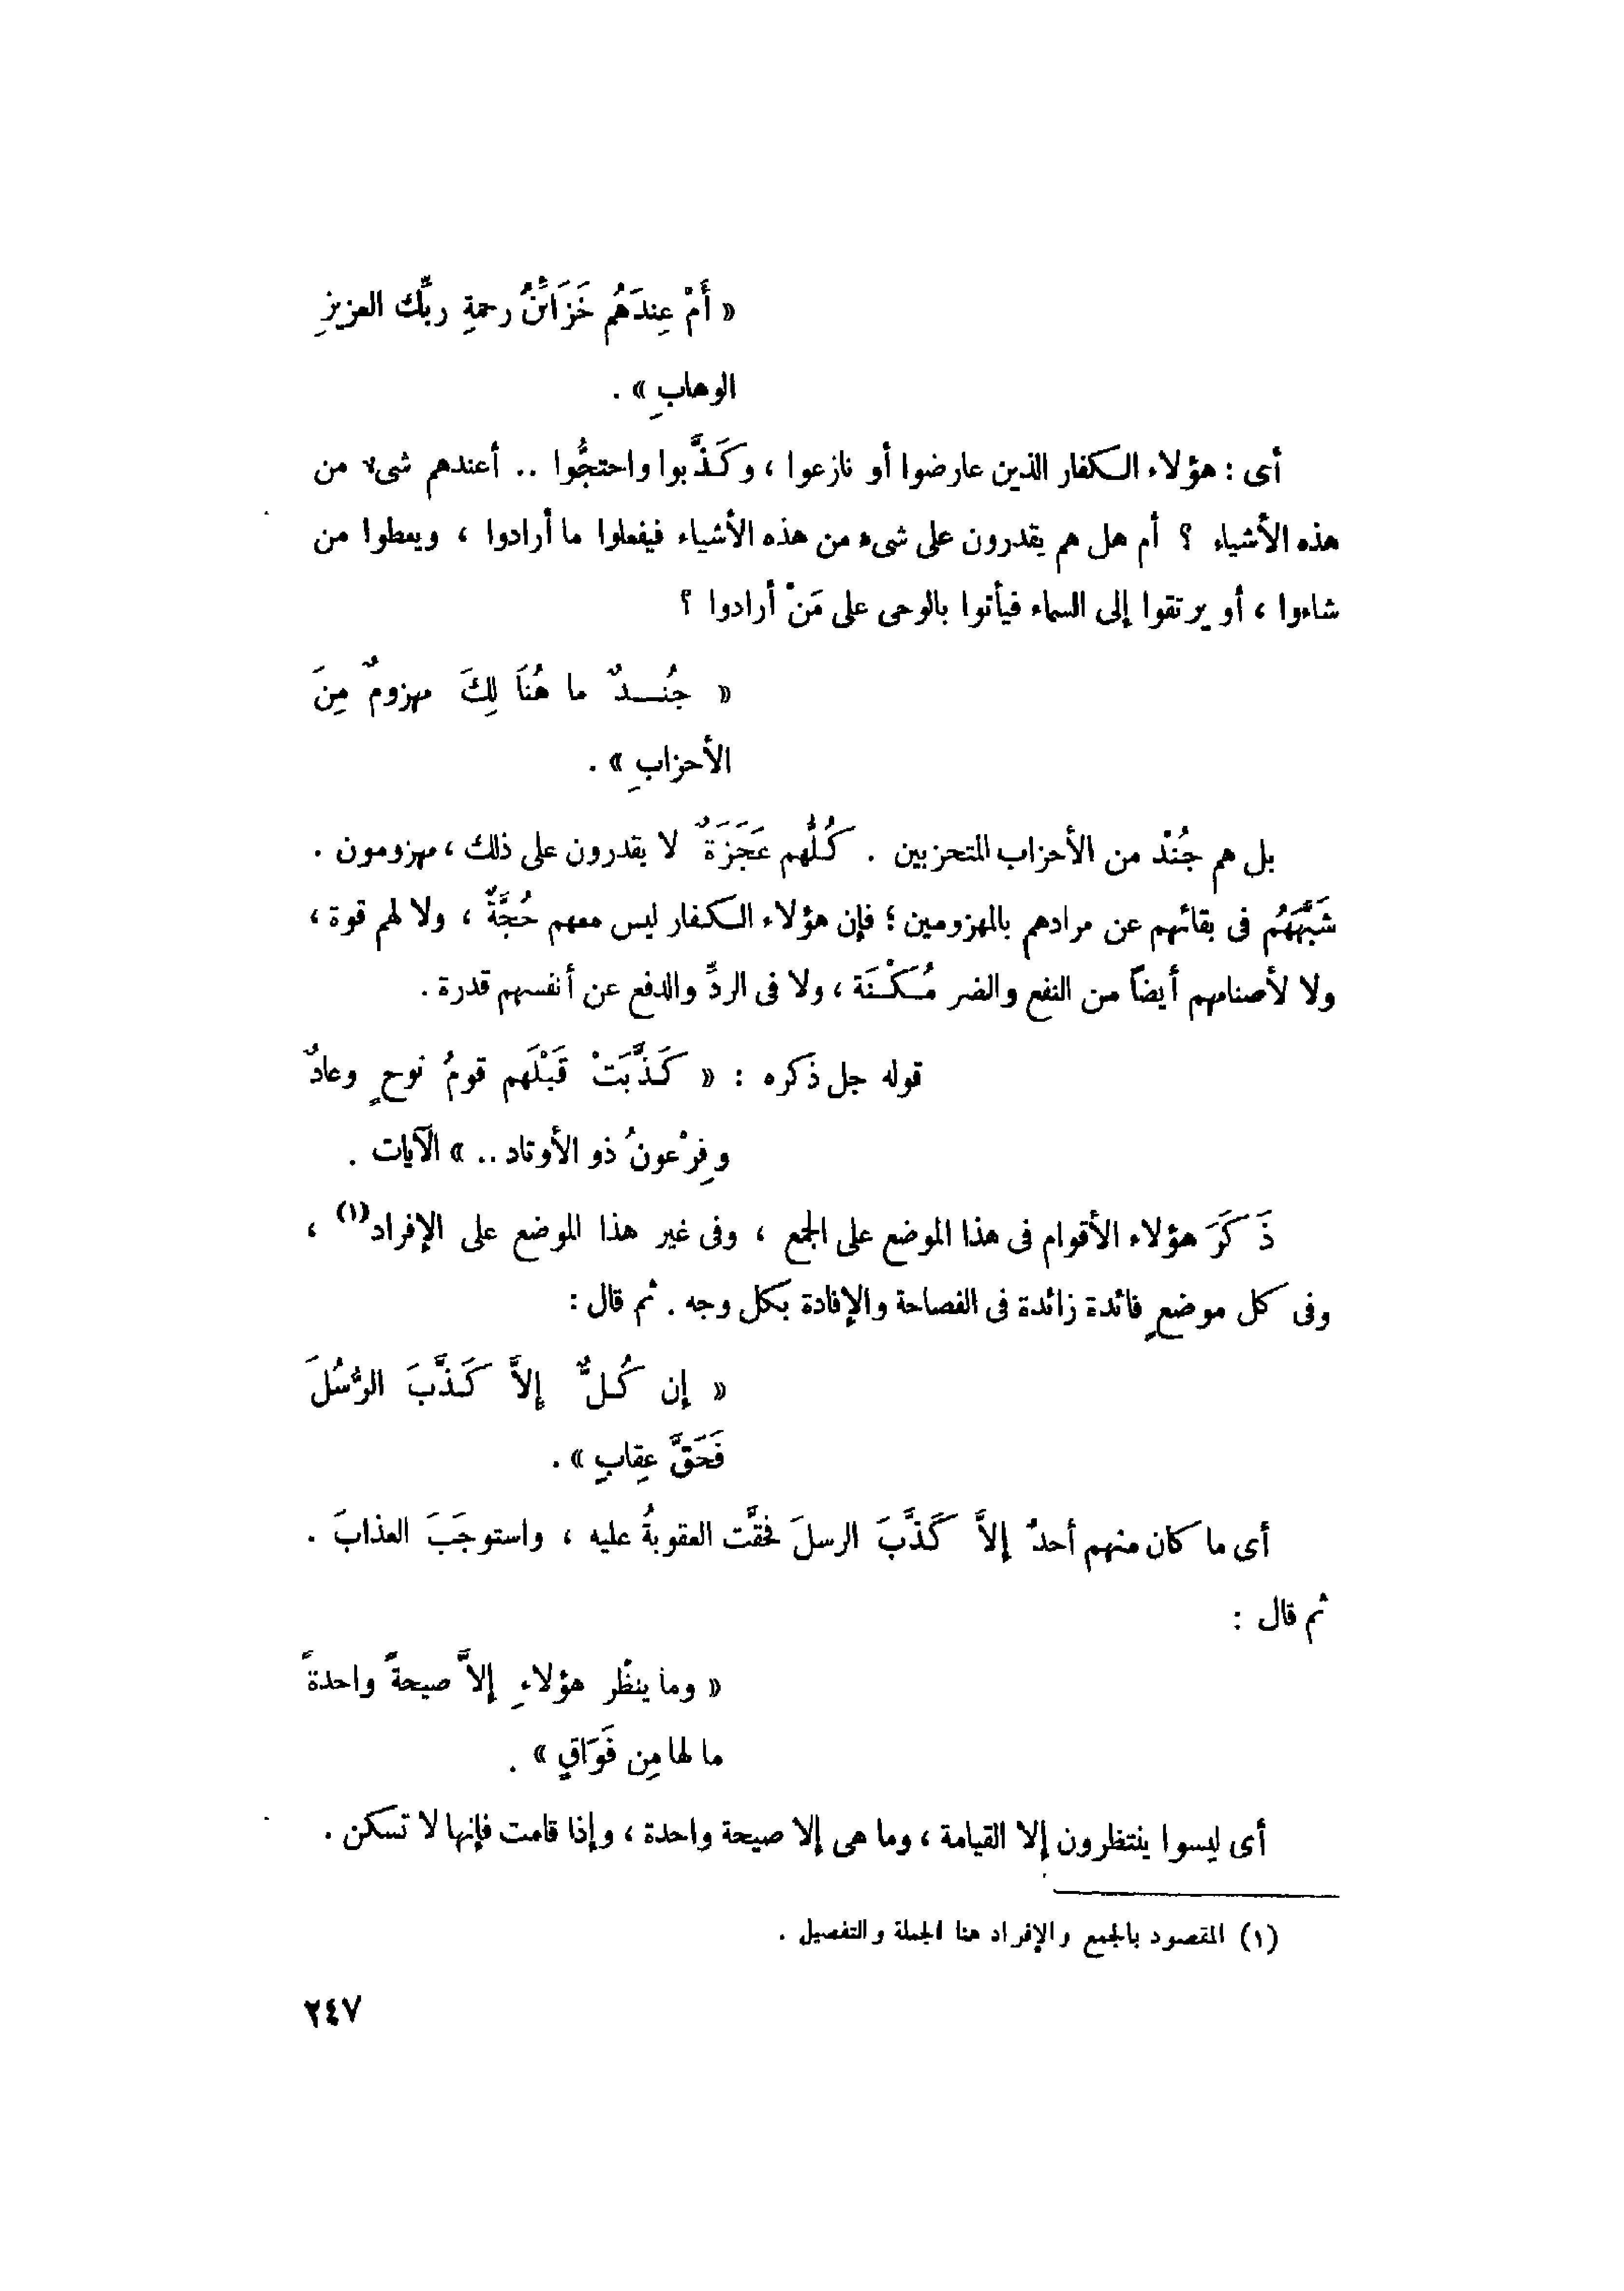 « أَمْ عِندَهُم خَزَائنُ رحمةِ ربِّك العزيزِ
الوهابِ » .
أى : هؤلاء الكفار الذين عارضوا أو نازعوا ، وكَذَّبوا واحتجُّوا .. أعندهم شىء من
هذه الأشياء ؟ أم هل هم يقدرون على شىء من هذه الأشياء فيفعلوا ما أرادوا ، ويعطوا من
شاءوا ، أو يرتقوا إلى السماء فيأتوا بالوحى على مَنْ أرادوا ؟
« جُندٌ ما هُنَا لِكَ مهزومٌ مِنَ
الأحزابِ » .
بل هم جُنْدٌ من الأحزاب المتحزبين . كُلُّهم عَجَزَةٌ لا يقدرون على ذلك ، مهزومون .
شَبَّهَهُم فى بقائهم عن مرادهم بالمهزومين ؛ فإن هؤلاء الكفار ليس معهم حُجَّةٌ ، ولا لهم قوة ،
ولا لأصنامهم أيضاً من النفع والضر مُكْنَة ، ولا فى الردِّ والدفع عن أنفسهم قدرة .
قوله جل ذكره : « كَذَّبَتْ قَبْلَهم قومُ نوحٍ وعادٌ
وفِرْعونُ ذو الأوتاد .. » الآيات .
ذَكَرَ هؤلاء الأقوام فى هذا الموضع على الجمع ، وفى غير هذا الموضع على الإفراد(١) ،
وفى كل موضعٍ فائدة زائدة فى الفصاحة والإفادة بكل وجه . ثم قال :
« إن كُلٌّ إلاَّ كَذَّبَ الرُّسُلَ
فَحَقَّ عِقابِ » .
أى ما كان منهم أحدٌ إلاَّ كَذَّبَ الرسلَ فحَقَّت العقوبةُ عليه ، واستوجَبَ العذابَ .
ثم قال :
« وما ينظُر هؤلاءِ إلاَّ صيحةً واحدةً
ما لها مِن فَوَاقٍ » .
أى ليسوا ينتظرون إلا القيامة ، وما هى إلا صيحة واحدة ، وإذا قامت فإنها لا تسكن .
(١) المقصود بالجمع والإفراد هنا الجملة والتفصيل .
٢٤٧